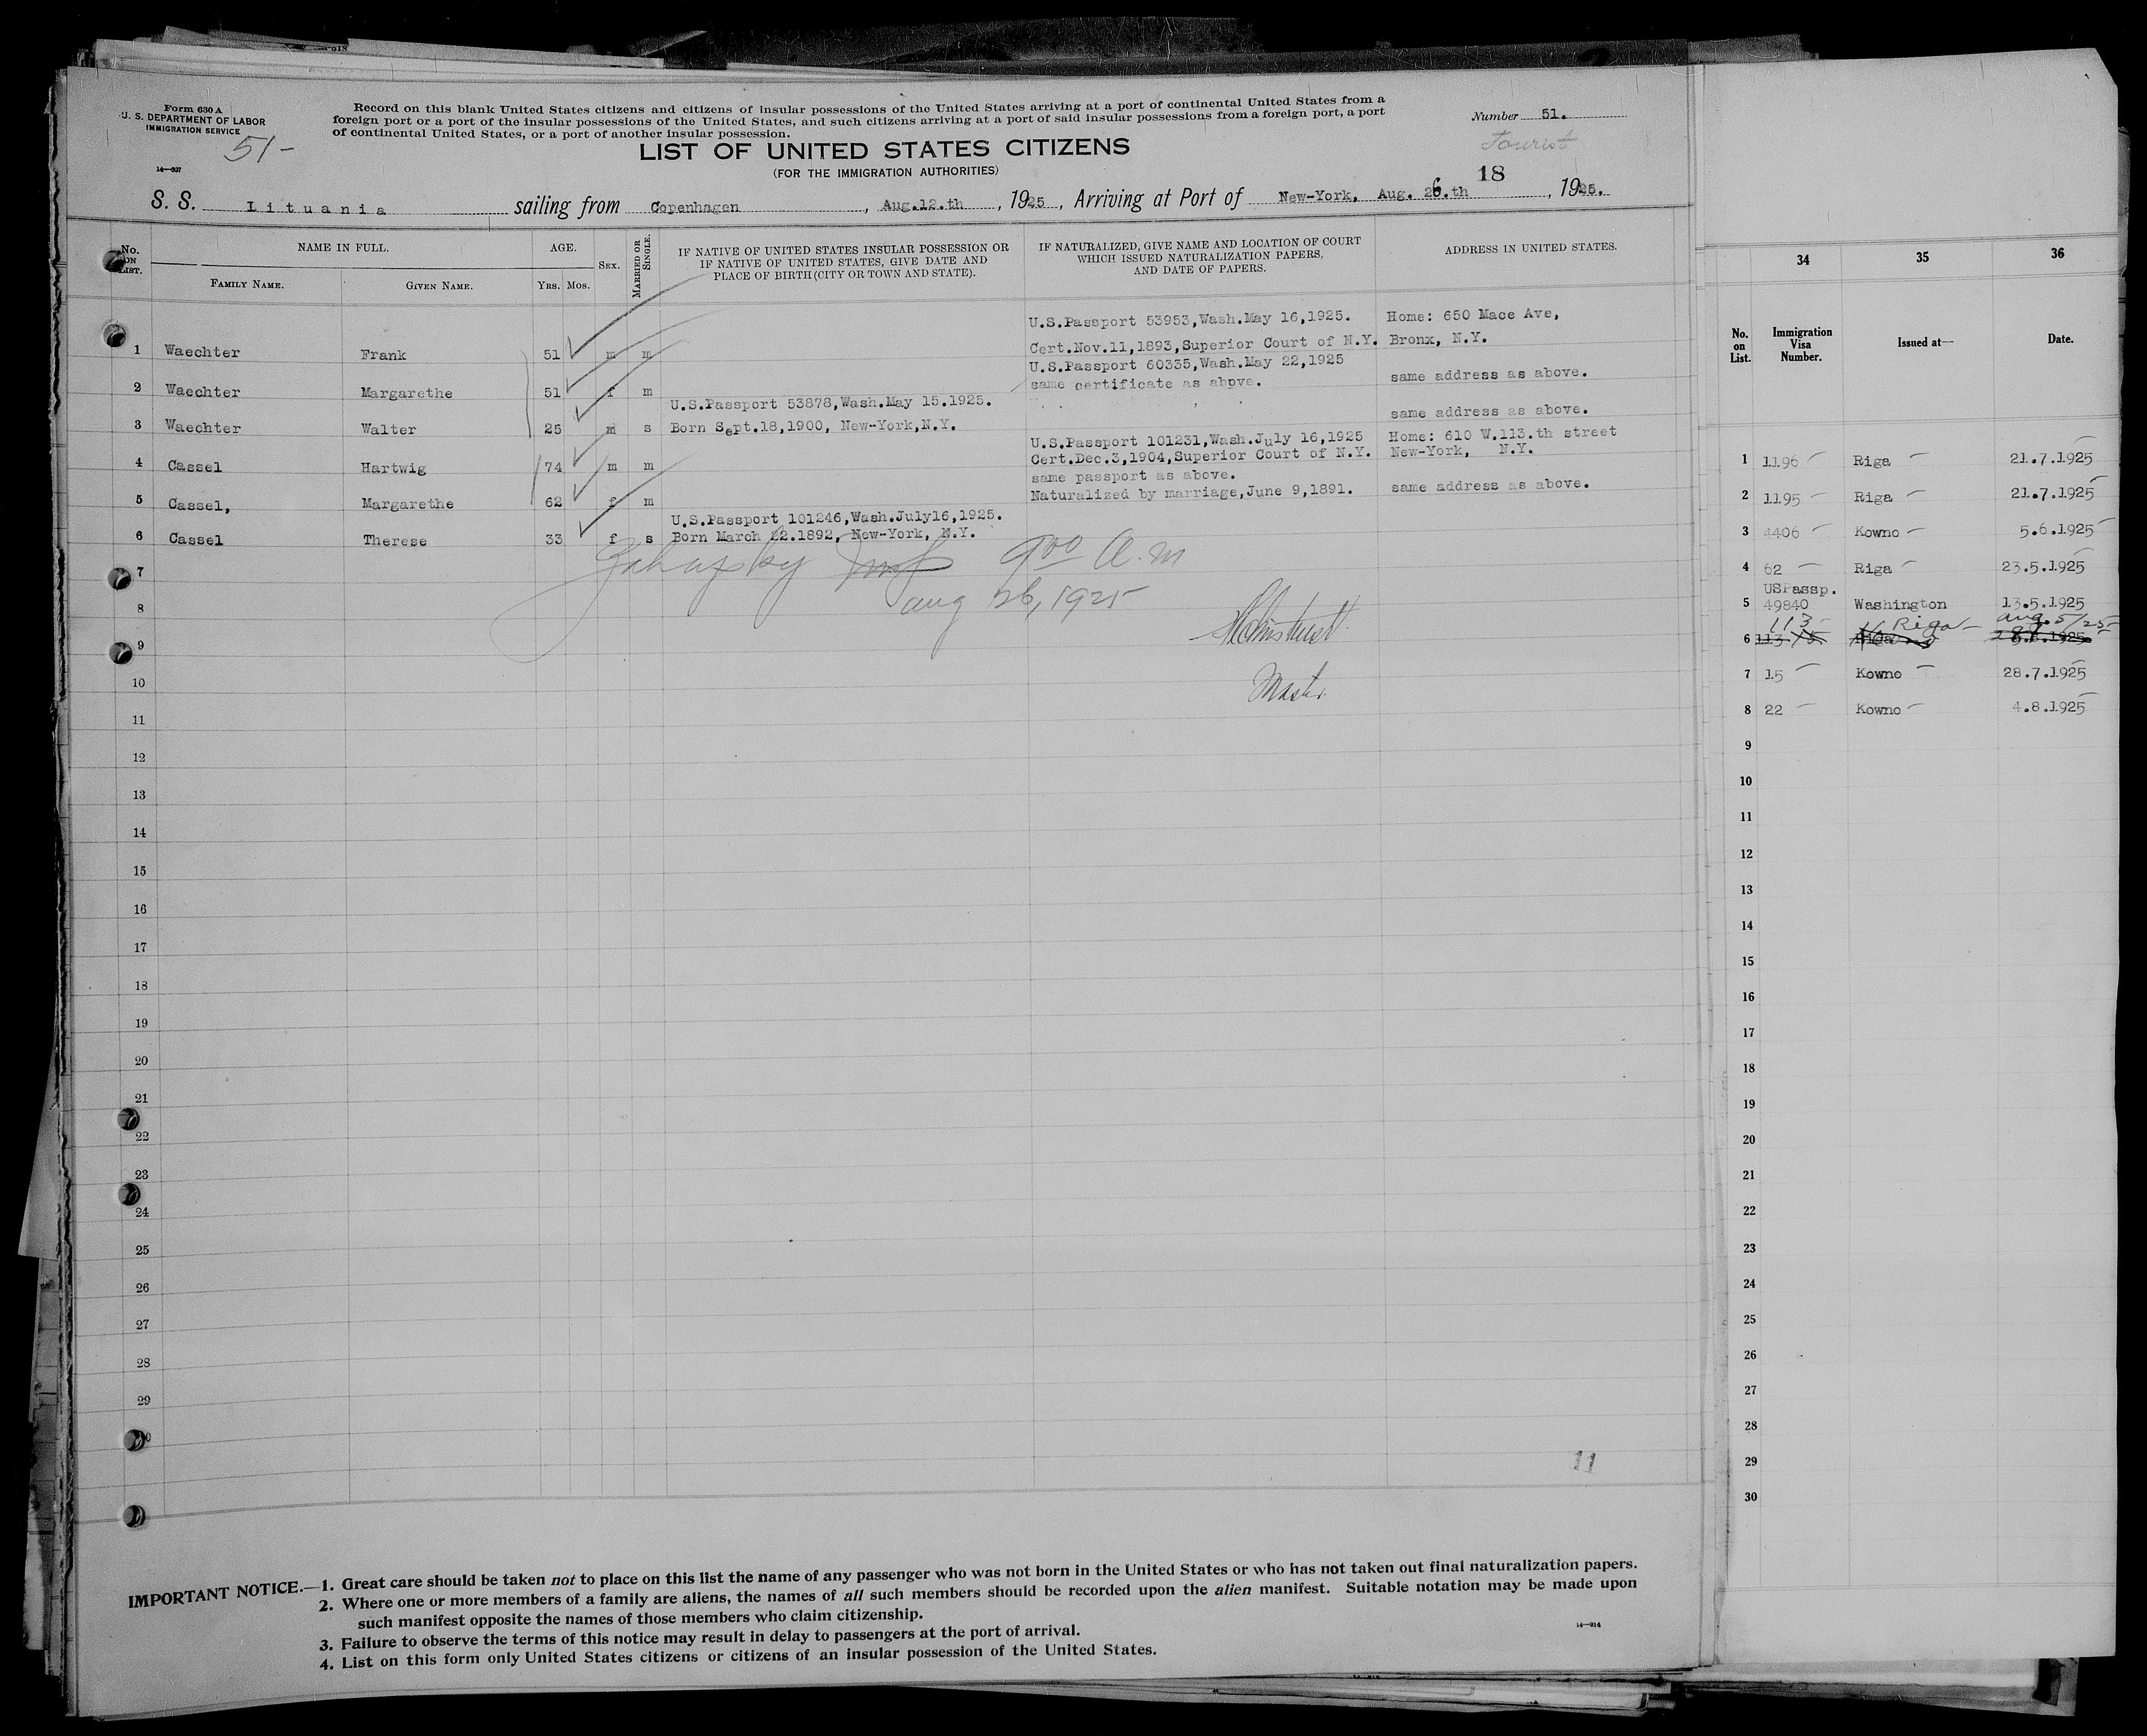 Form 630 A
U. S. DEPARTMENT OF LABOR
IMMIGRATION SERVICE
51-
14—937
Record on this blank United States citizens and citizens of insular possessions of the United States arriving at a port of continental United States from a
foreign port or a port of the insular possessions of the United States, and such citizens arriving at a port of said insular possessions from a foreign port, a port
of continental United States, or a port of another insular possession.
Number 51.
Tourist
LIST OF UNITED STATES CITIZENS
(FOR THE IMMIGRATION AUTHORITIES)
18
S. S. Lituania sailing from Copenhagen, Aug.12.th, 1925, Arriving at Port of New-York, Aug. 26.th, 1925.
No. ON LIST.
NAME IN FULL.
FAMILY NAME. GIVEN NAME.
AGE.
YRS. MOS.
SEX.
MARRIED OR SINGLE.
IF NATIVE OF UNITED STATES INSULAR POSSESSION OR
IF NATIVE OF UNITED STATES, GIVE DATE AND
PLACE OF BIRTH (CITY OR TOWN AND STATE).
IF NATURALIZED, GIVE NAME AND LOCATION OF COURT
WHICH ISSUED NATURALIZATION PAPERS,
AND DATE OF PAPERS.
ADDRESS IN UNITED STATES.
U.S.Passport 53953,Wash.May 16,1925. Home: 650 Mace Ave,
1 Waechter Frank 51 m m Cert.Nov.11,1893,Superior Court of N.Y. Bronx, N.Y.
U.S.Passport 60335,Wash.May 22,1925
2 Waechter Margarethe 51 f m same certificate as above. same address as above.
U.S.Passport 53878,Wash.May 15.1925.
3 Waechter Walter 25 m s Born Sept.18,1900, New-York,N.Y. same address as above.
U.S.Passport 101231,Wash.July 16,1925 Home: 610 W.113.th street
4 Cassel Hartwig 74 m m Cert.Dec.3,1904,Superior Court of N.Y. New-York, N.Y.
same passport as above.
5 Cassel, Margarethe 62 f m Naturalized by marriage,June 9,1891. same address as above.
U.S.Passport 101246,Wash.July16,1925.
6 Cassel Therese 33 f s Born March 22.1892, New-York, N.Y.
9 00 A.M
Aug 26, 1925
7
8
9
Master
10
11
12
13
14
15
16
17
18
19
20
21
22
23
24
25
26
27
28
29
11
IMPORTANT NOTICE.—1. Great care should be taken not to place on this list the name of any passenger who was not born in the United States or who has not taken out final naturalization papers.
2. Where one or more members of a family are aliens, the names of all such members should be recorded upon the alien manifest. Suitable notation may be made upon
such manifest opposite the names of those members who claim citizenship.
3. Failure to observe the terms of this notice may result in delay to passengers at the port of arrival.
4. List on this form only United States citizens or citizens of an insular possession of the United States.
14—914
34 35 36
No. on List.
Immigration Visa Number.
Issued at—
Date.
1 1196 Riga 21.7.1925
2 1195 Riga 21.7.1925
3 4406 Kowno 5.6.1925
4 62 Riga 23.5.1925
USPassp.
5 49840 Washington 13.5.1925
113 Riga Aug. 5/25
6
7 15 Kowno 28.7.1925
8 22 Kowno 4.8.1925
9
10
11
12
13
14
15
16
17
18
19
20
21
22
23
24
25
26
27
28
29
30